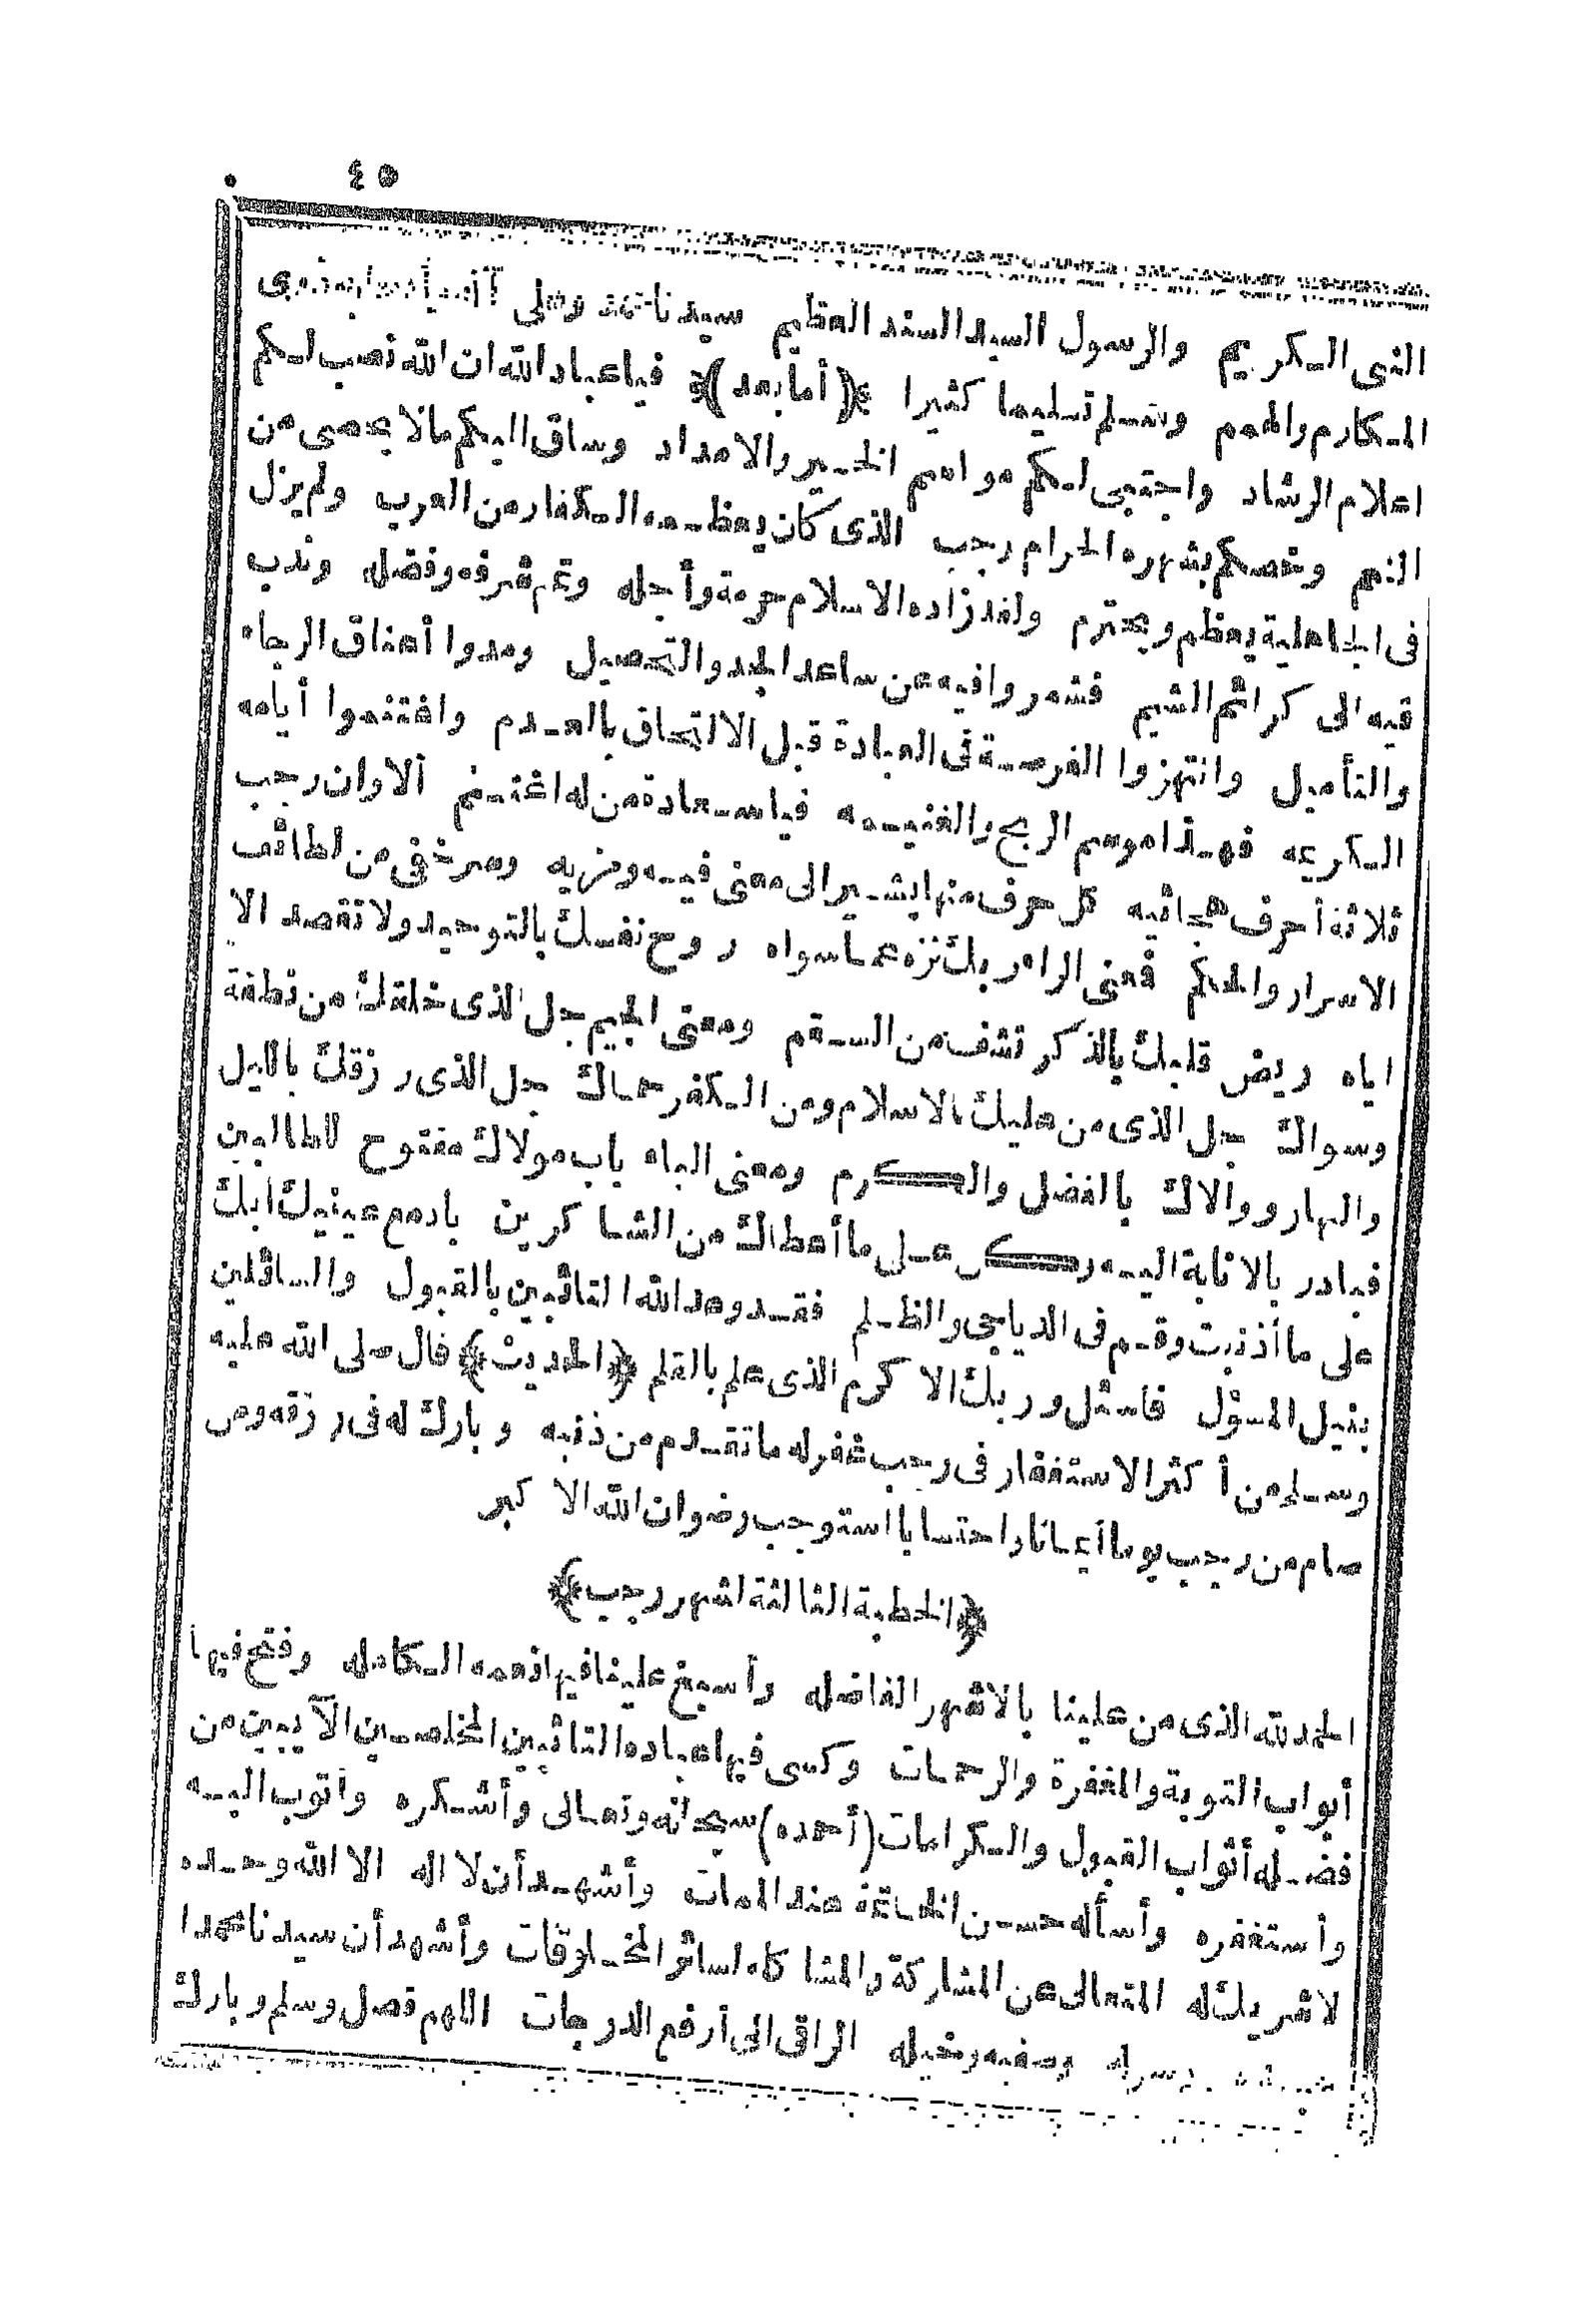 ٤٥
النبى الكريم والرسول السيد السند العظيم سيدنا محمد وعلى آله وأصحابه ذوى
المكارم والهمم وسلم تسليما كثيرا (أما بعد) فيا عباد الله ان الله نصب لكم
اعلام الرشاد واجتبى لكم مواسم الخير والامداد وساق اليكم مالا يحصى من
النعم وخصكم بشهره الحرام رجب الذى كان يعظمه الكفار من العرب ولم يزل
فى الجاهلية يعظم ويحترم ولقد زاده الاسلام حرمة وأجله وتمم شرفه وفضله وندب
فيه الى كرائم الشيم فشمروا فيه عن ساعد الجد والتحصيل ومدوا أعناق الرجاء
والتأميل وانتهزوا الفرصة فى العبادة قبل الالتحاق بالعدم واغتنموا أيامه
الكريمه فهذا موسم الربح والغنيمه فيا سعادة من له اغتنم ألا وان رجب
ثلاثة أحرف هجائيه كل حرف منها يشير الى معنى فيه ومزيه وسر خفى من لطائف
الاسرار والحكم فمعنى الراء ربك نزه عما سواه روح نفسك بالتوحيد ولا تقصد الا
اياه ريض قلبك بالذكر تشف من السقم ومعنى الجيم جل الذى خلقك من نطفة
وسواك جل الذى من عليك بالاسلام ومن الكفر حماك جل الذى رزقك بالليل
والنهار ووالاك بالفضل والكرم ومعنى الباء باب مولاك مفتوح للطالبين
فبادر بالانابة اليه وكن على ما أعطاك من الشاكرين بادمع عينيك ابك
على ما أذنبت وقم فى الدياجى والظلم فقد وعد الله التائبين بالقبول والسائلين
بنيل المسؤل فامتثل وربك الاكرم الذى علم بالقلم (الحديث) قال صلى الله عليه
وسلم من أكثر الاستغفار فى رجب غفر له ما تقدم من ذنبه وبارك له فى رزقه ومن
صام من رجب يوما أيمانا واحتسابا استوجب رضوان الله الاكبر
(الخطبة الثالثة لشهر رجب)
الحمد لله الذى من علينا بالاشهر الفاضله وأسبغ علينا فيها نعمه الكامله وفتح فيها
أبواب التوبة والمغفرة والرحمات وكسى فيها عباده التائبين المخلصين الآيبين من
فضله أثواب القبول والكرامات (أحمده) سبحانه وتعالى وأشكره وأتوب اليه
وأستغفره وأسأله حسن الخاتمة عند الممات وأشهد أن لا اله الا الله وحده
لا شريك له المتعالى عن المشاركة والمشاكله لسائر المخلوقات وأشهد أن سيدنا محمدا
وصفيه وخليله الراقى الى أرفع الدرجات اللهم فصل وسلم وبارك